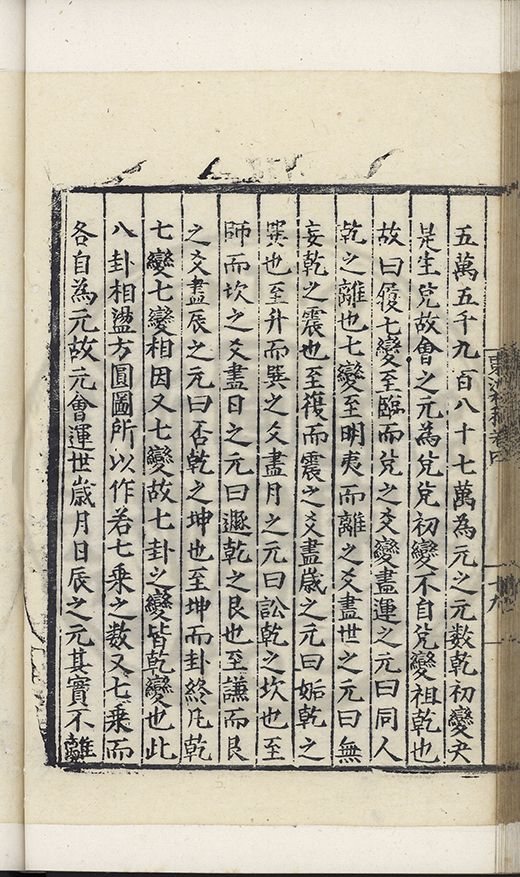 五萬五千九百八十七萬為元之元數乾初變夬
是生兌故會之元為兌兌初變不自兌變祖乾也
故曰履七變至臨而兌之爻變盡運之元曰同人
乾之離也七變至明夷而離之爻盡世之元曰無
妄乾之震也至復而震之爻盡歲之元曰姤乾之
巽也至升而巽之爻盡月之元曰訟乾之坎也至
師而坎之爻盡日之元曰遯乾之艮也至謙而艮
之爻盡辰之元曰否乾之坤也至坤而卦終凡乾
七變七變相因又七變故七卦之變皆乾變也此
八卦相盪方圓圖所以作若七乘之数又七乘而
各自為元故元會運世歲月日辰之元其實不離